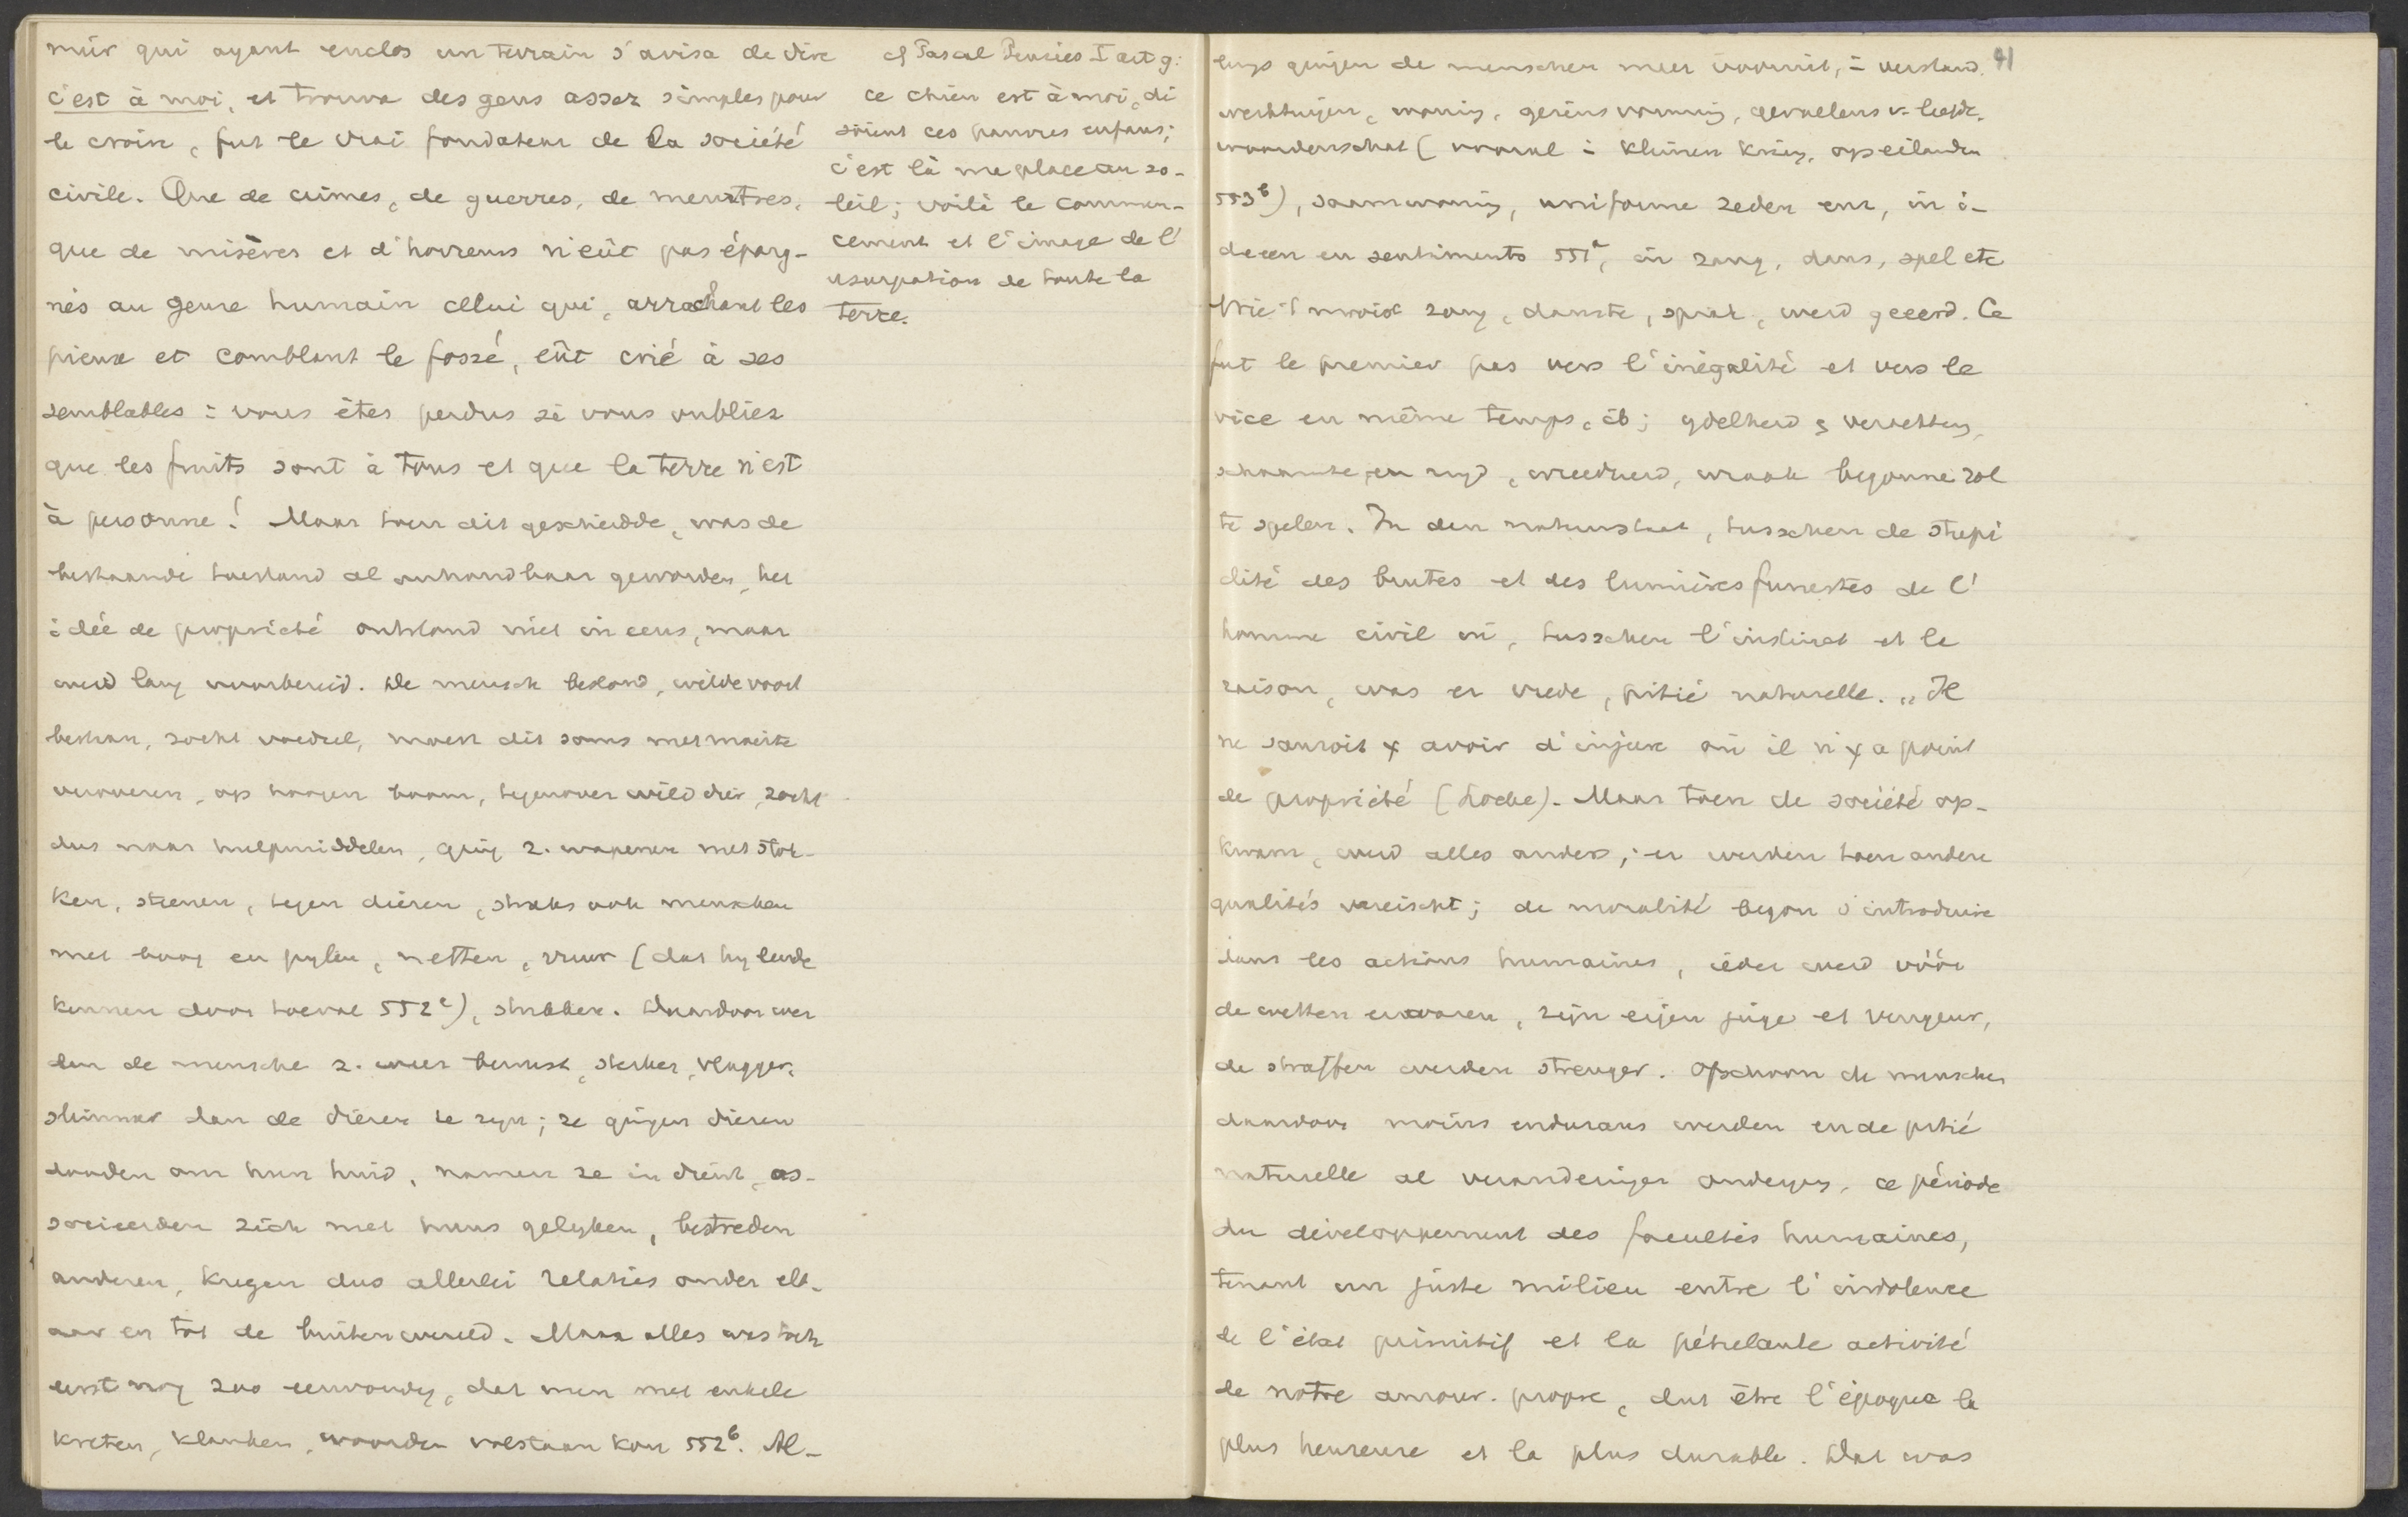 miér qui ayant enclos un terrain s'avisa de dire
c'est à moi, et trouva des gens assez simples pour
le croire, fut le vrai fondateur de la société
civile. Que de crimes, de guerres, de meurtres,
que de misères et d'horreurs n'eût pas éparg-
nés au genre humain celui qui, arrachant les
pieux et comblant le fossé, eût crié à ses
semblables: vous êtes perdus si vous oubliez
que les fruits sont à tous et que la terre n'est
à personne! Maar toen dit geschiedde, was de
bestaande toestand al onhoudbaar geworden, het
idée de propriété ontstond niet in eens, maar
werd lang voorbereid. De mensch bestond, wilde voort
bestaan, zocht voedsel, moest dit soms met moeite
veroveren, op hoogen boom, tegenover wild dier, zocht
dus naar hulpmiddelen, ging z. wapenen met stok-
ken, steenen, tegen dieren, straks ook menschen
met boog en pylen, netten, vuur (dat hy leerde
kennen door toeval 552a), Daardoor wer
den de mensche z. meer bewust, sterker, vlugger,
slimmer dan de dieren te zyn; ze gingen dieren
dooden om hun huid, namen ze in dienst, as-
socieerden zich met huns gelyken, bestreden
anderen, kregen dus allerlei relaties onder elk-
aar en tot de buitenwereld. Maar alles was toch
eerst nog zoo eenvoudig, dat men met enkele
kreten, klanken, woorden volstaan kon 552b. Al-
cf Pascal Pensées I art 9:
ce chien est à moi, di
soient ces pauvres enfans;
c'est là ma place au so-
leil; voilà le commen-
cement et l'image de l'
usurpation de toute la
terre.
41
lengs gingen de menschen meer vooruit, i verstand,
werktuigen, woning, gezinsvorming, gevoelens v. liefde,
woordenschat (vooral i kleinen kring, op eilanden
553b), saamwoning, uniforme zeden enz, in i-
deeen en sentiments 551a, in zang, dans, spel etc
Wie 't mooist zong, danste, sprak, werd geeerd. Ce
fut le premier pas vers l'inégalité et vers le
vice en même temps, ib; ydelheid & verachting,
schaamte en nyd, wreedheid, wraak begonne rol
te spelen. In den natuurstaat, tusschen de stupi
dité des brutes et des lumières funestes de l'
homme civil in, tusschen l'instinct et la
raison, was er vrede, pitié naturelle. „Il
ne sauroit y avoir d'injure où il n'y a point
de propriété (Locke). Maar toen de société op-
kwam, werd alles anders; er werden toen andere
qualités vereischt; de moralité begon s'introduire
dans les actions humaines, ieder werd vóór
de wetten er waren, zijn eigen juge et vengeur,
de straffen werden strenger. Ofschoon de menschen
daardoor moins endurans werden en de pitié
naturelle al veranderingen onderging, ce période
du développement des facultés humaines,
tenant un juste milieu entre l'indolence
de l'état primitif et la pétulante activité
de notre amour-propre, dut être l'époque la
plus heureuse et la plus durable. Dat was